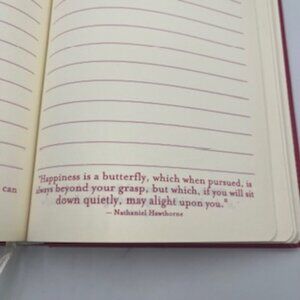 can
"Happiness is a butterfly, which when pursued, is
always beyond your grasp, but which, if you will sit
down quietly, may alight upon you."
— Nathaniel Hawthorne